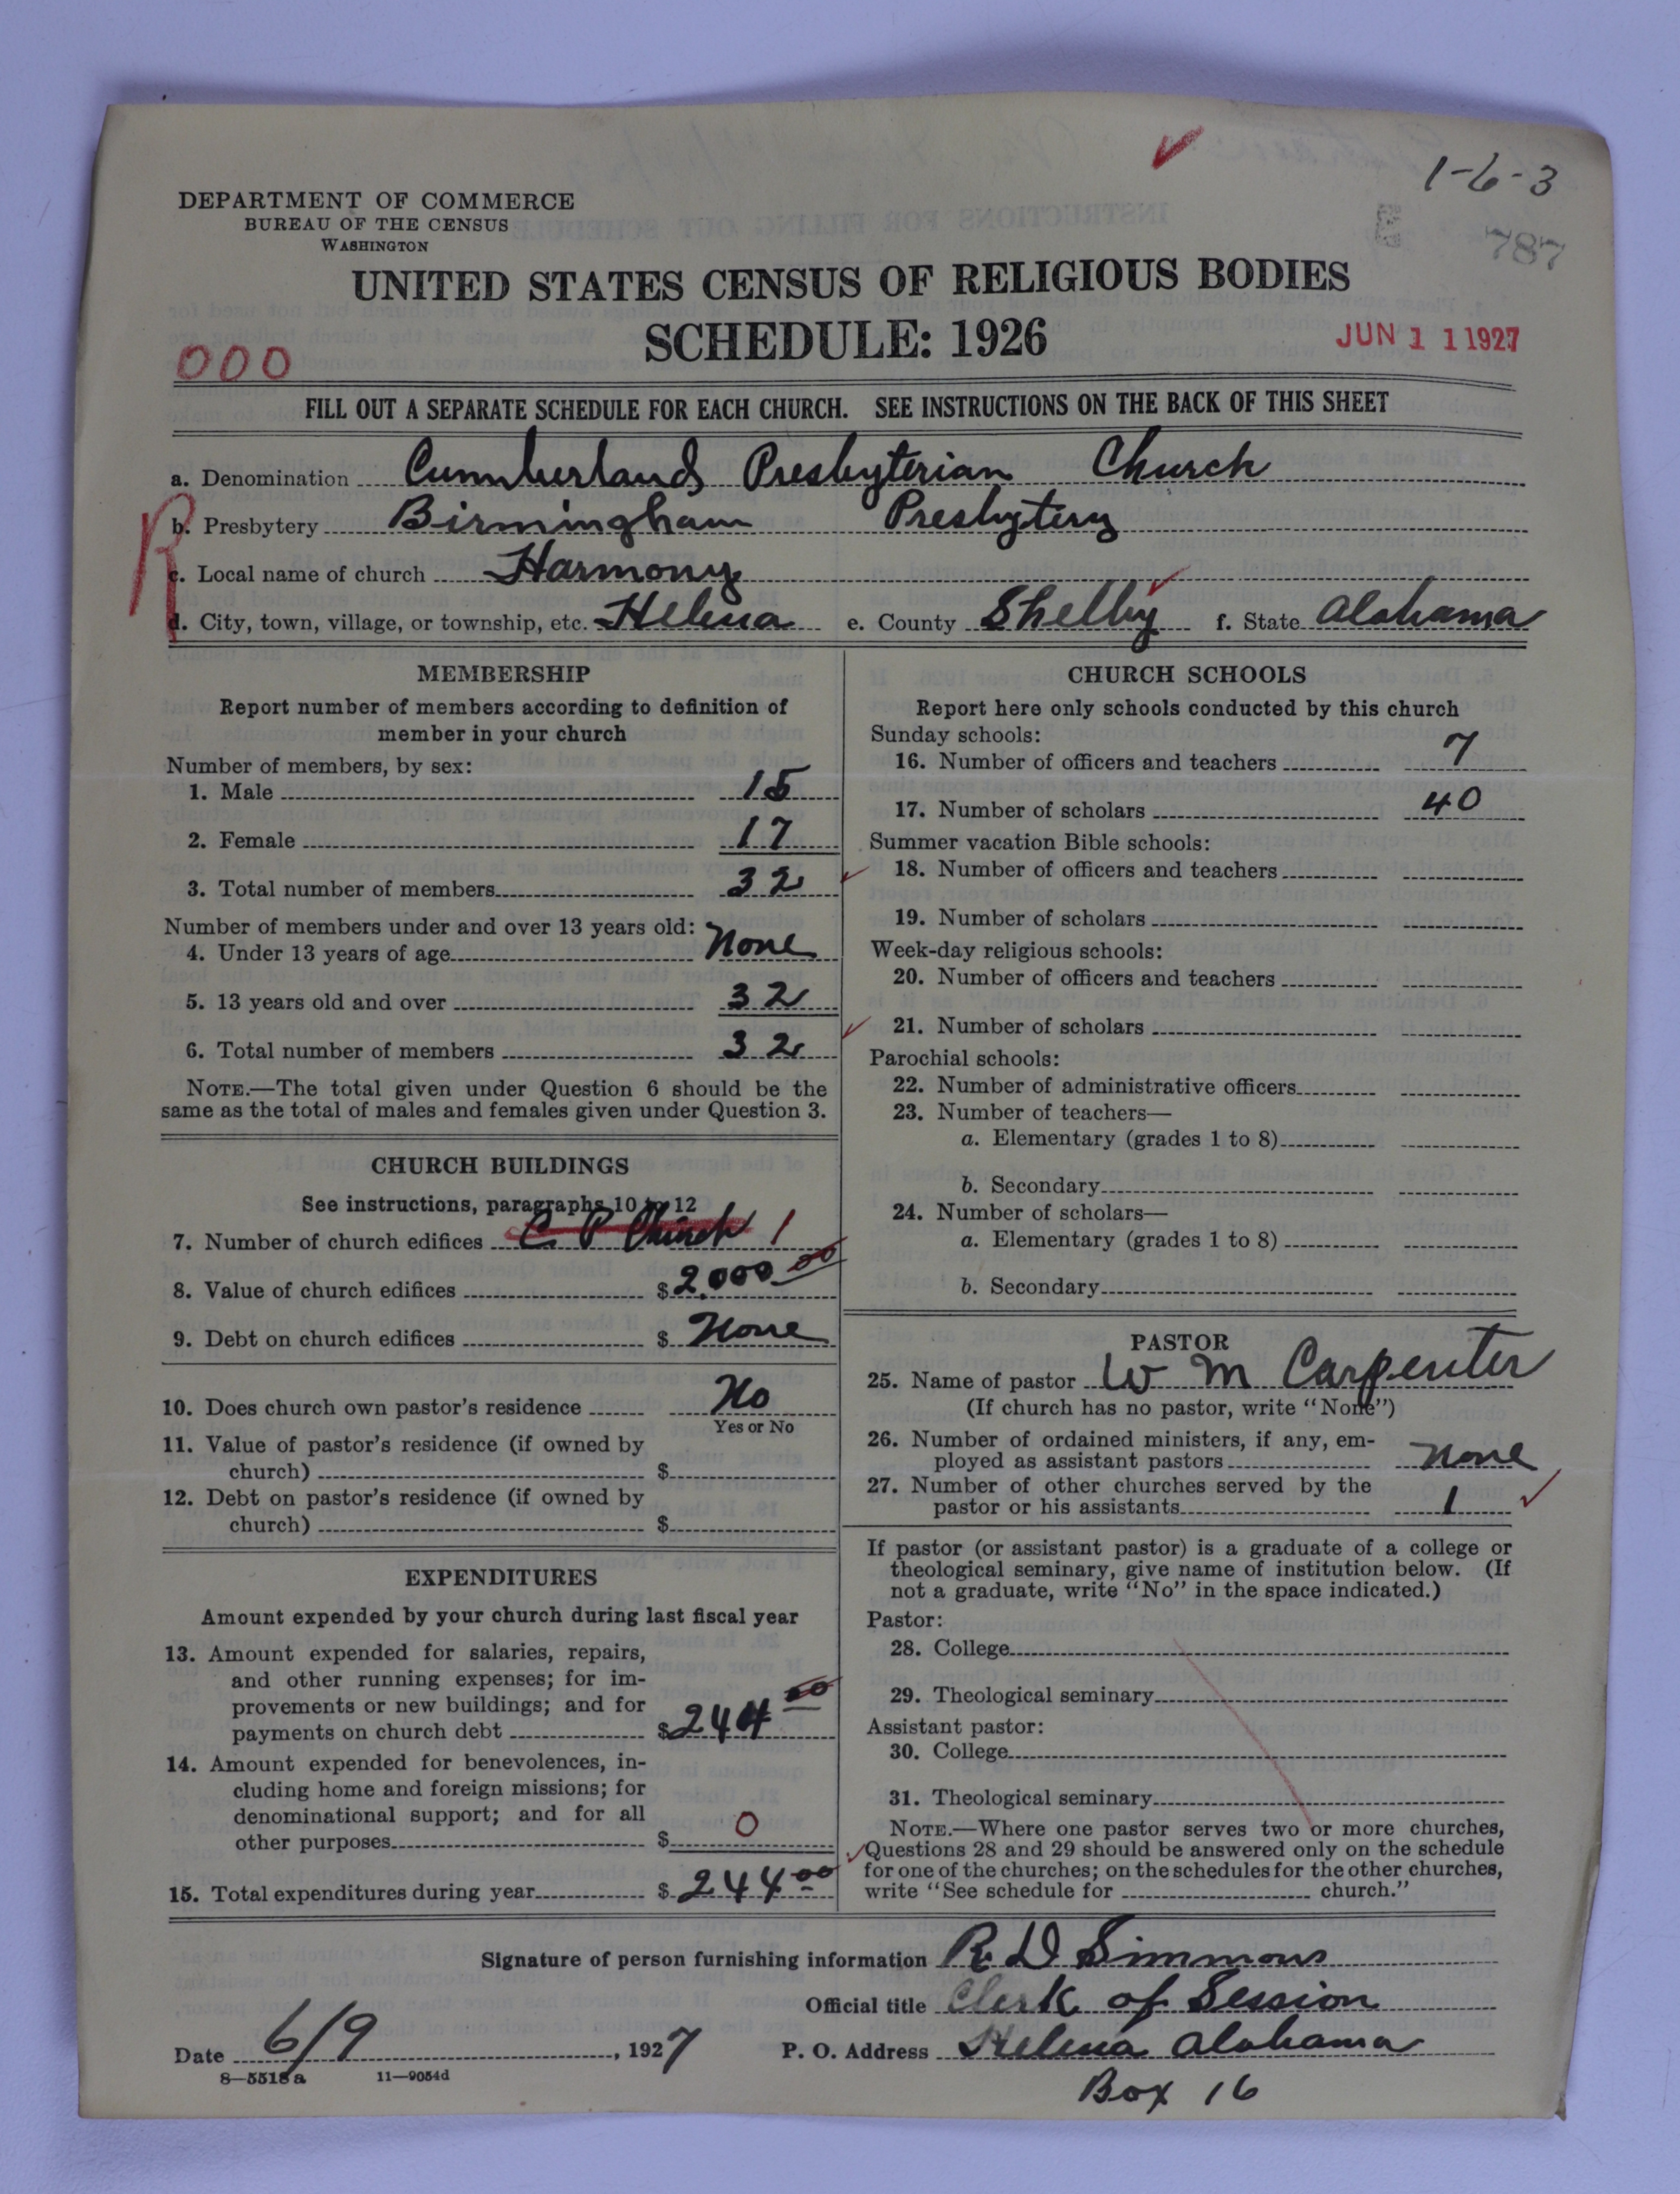 1-6-3
787
DEPARTMENT OF COMMERCE
BUREAU OF THE CENSUS
WASHINGTON
UNITED STATES CENSUS OF RELIGIOUS BODIES
SCHEDULE: 1926
JUN 11 1927
000
FILL OUT A SEPARATE SCHEDULE FOR EACH CHURCH. SEE INSTRUCTIONS ON THE BACK OF THIS SHEET
a. Denomination Cumberland Presbyterian Church
R
b. Presbytery Birmingham Presbytery
c. Local name of church Harmony
d. City, town, village, or township, etc. Helena e. County Shelby f. State Alabama
MEMBERSHIP
Report number of members according to definition of
member in your church
Number of members, by sex:
1. Male 15
2. Female 17
3. Total number of members 32
Number of members under and over 13 years old:
4. Under 13 years of age None
5. 13 years old and over 32
6. Total number of members 32
NOTE.—The total given under Question 6 should be the
same as the total of males and females given under Question 3.
CHURCH BUILDINGS
See instructions, paragraphs 10 to 12
7. Number of church edifices C P Church 1
8. Value of church edifices $ 2,000 00
9. Debt on church edifices $ None
10. Does church own pastor's residence No
Yes or No
11. Value of pastor's residence (if owned by
church) $
12. Debt on pastor's residence (if owned by
church) $
EXPENDITURES
Amount expended by your church during last fiscal year
13. Amount expended for salaries, repairs,
and other running expenses; for im-
provements or new buildings; and for
payments on church debt $ 244 00
14. Amount expended for benevolences, in-
cluding home and foreign missions; for
denominational support; and for all
other purposes $ 0
15. Total expenditures during year $ 244 00
CHURCH SCHOOLS
Report here only schools conducted by this church
Sunday schools:
16. Number of officers and teachers 7
17. Number of scholars 40
Summer vacation Bible schools:
18. Number of officers and teachers
19. Number of scholars
Week-day religious schools:
20. Number of officers and teachers
21. Number of scholars
Parochial schools:
22. Number of administrative officers
23. Number of teachers—
a. Elementary (grades 1 to 8)
b. Secondary
24. Number of scholars—
a. Elementary (grades 1 to 8)
b. Secondary
PASTOR
25. Name of pastor W M Carpenter
(If church has no pastor, write "None")
26. Number of ordained ministers, if any, em-
ployed as assistant pastors None
27. Number of other churches served by the
pastor or his assistants 1
If pastor (or assistant pastor) is a graduate of a college or
theological seminary, give name of institution below. (If
not a graduate, write "No" in the space indicated.)
Pastor:
28. College
29. Theological seminary
Assistant pastor:
30. College
31. Theological seminary
NOTE.—Where one pastor serves two or more churches,
Questions 28 and 29 should be answered only on the schedule
for one of the churches; on the schedules for the other churches,
write "See schedule for church."
Signature of person furnishing information R D Simmons
Official title Clerk of Session
Date 6/9, 1927 P. O. Address Helena Alabama
8—5518a 11—9054d
Box 16